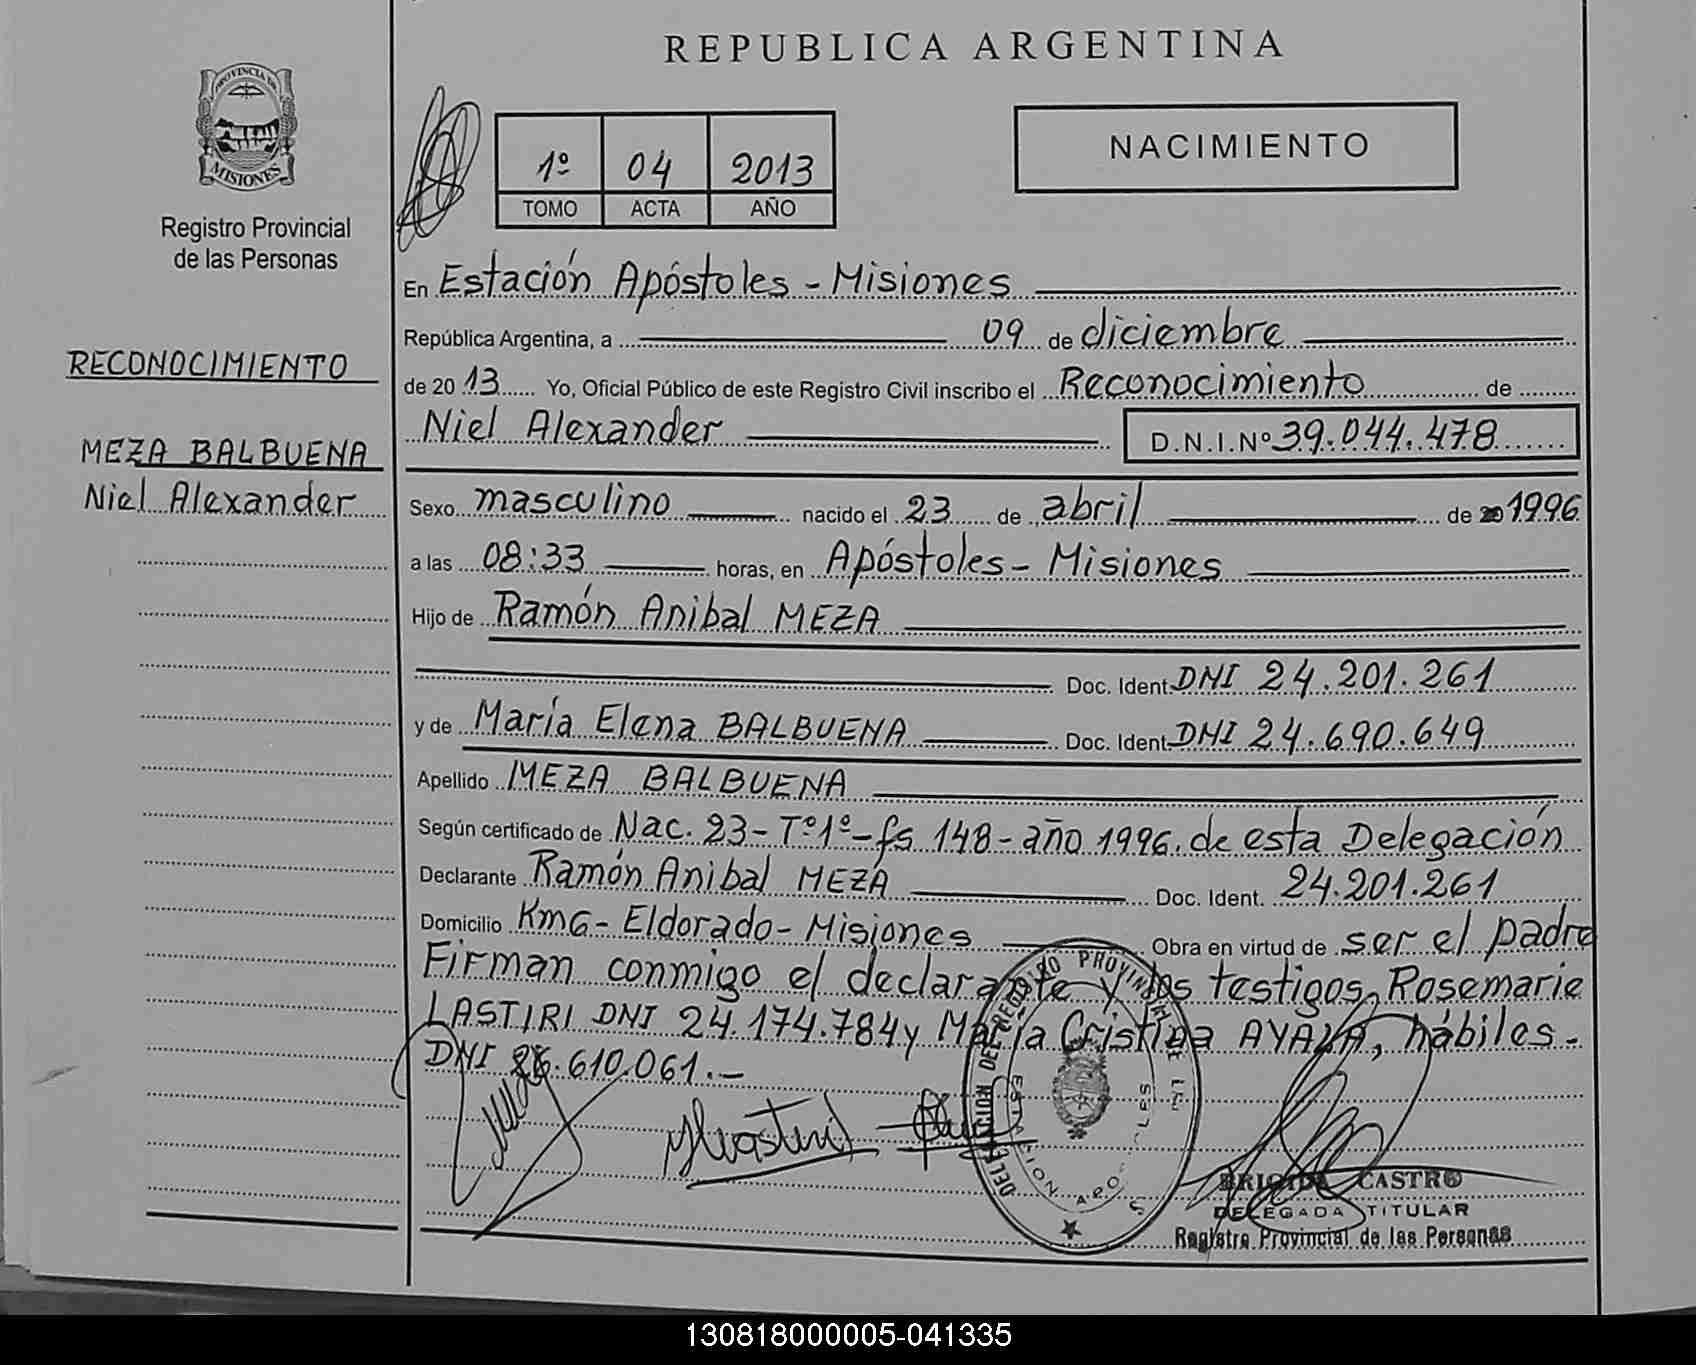 REPUBLICA ARGENTINA
PROVINCIA DE
MISIONES
Registro Provincial
de las Personas
1º 04 2013
TOMO ACTA AÑO
NACIMIENTO
RECONOCIMIENTO
MEZA BALBUENA
Niel Alexander
En Estación Apóstoles - Misiones
República Argentina, a 09 de diciembre
de 2013 Yo, Oficial Público de este Registro Civil inscribo el Reconocimiento de
Niel Alexander D.N.I.Nº 39.044.478
Sexo masculino nacido el 23 de abril de 1996
a las 08:33 horas, en Apóstoles - Misiones
Hijo de Ramón Anibal MEZA
Doc. Ident DNI 24.201.261
y de María Elena BALBUENA Doc. Ident DNI 24.690.649
Apellido MEZA BALBUENA
Según certificado de Nac. 23 - Tº1º - fs 148 - año 1996. de esta Delegación
Declarante Ramón Anibal MEZA Doc. Ident. 24.201.261
Domicilio Km6 - Eldorado - Misiones Obra en virtud de ser el padre
Firman conmigo el declarante y los testigos, Rosemarie
LASTIRI DNI 24.174.784 y María Cristina AYALA, hábiles.-
DNI 610.061.-
BRIGIDA CASTRO
DELEGADA TITULAR
Registro Provincial de las Personas
130818000005-041335